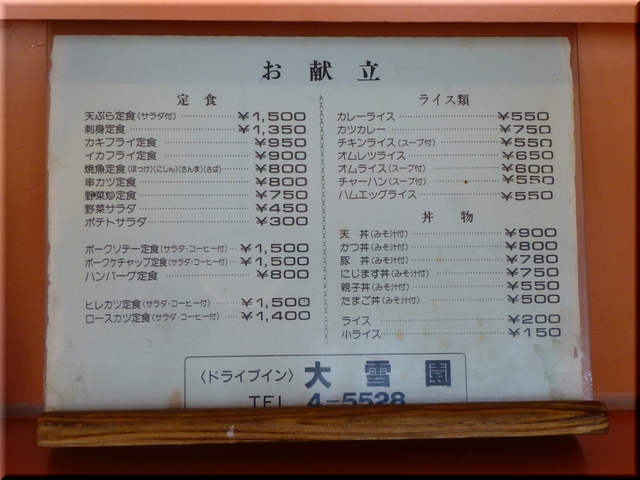 お献立
定食
天ぷら定食(サラダ付) ¥1,500
刺身定食 ¥1,350
カキフライ定食 ¥950
イカフライ定食 ¥900
焼魚定食(ほっけ)(にしん)(さんま)(さば) ¥800
串カツ定食 ¥800
野菜炒定食 ¥750
野菜サラダ ¥450
ポテトサラダ ¥300
ポークソテー定食(サラダ・コーヒー付) ¥1,500
ポークケチャップ定食(サラダ・コーヒー付) ¥1,500
ハンバーグ定食 ¥800
ヒレカツ定食(サラダ・コーヒー付) ¥1,500
ロースカツ定食(サラダ・コーヒー付) ¥1,400
ライス類
カレーライス ¥550
カツカレー ¥750
チキンライス(スープ付) ¥550
オムレツライス ¥650
オムライス(スープ付) ¥600
チャーハン(スープ付) ¥550
ハムエッグライス ¥550
丼物
天丼(みそ汁付) ¥900
かつ丼(みそ汁付) ¥800
豚丼(みそ汁付) ¥780
にじます丼(みそ汁付) ¥750
親子丼(みそ汁付) ¥550
たまご丼(みそ汁付) ¥500
ライス ¥200
小ライス ¥150
〈ドライブイン〉大雪園
TEL 4-5528